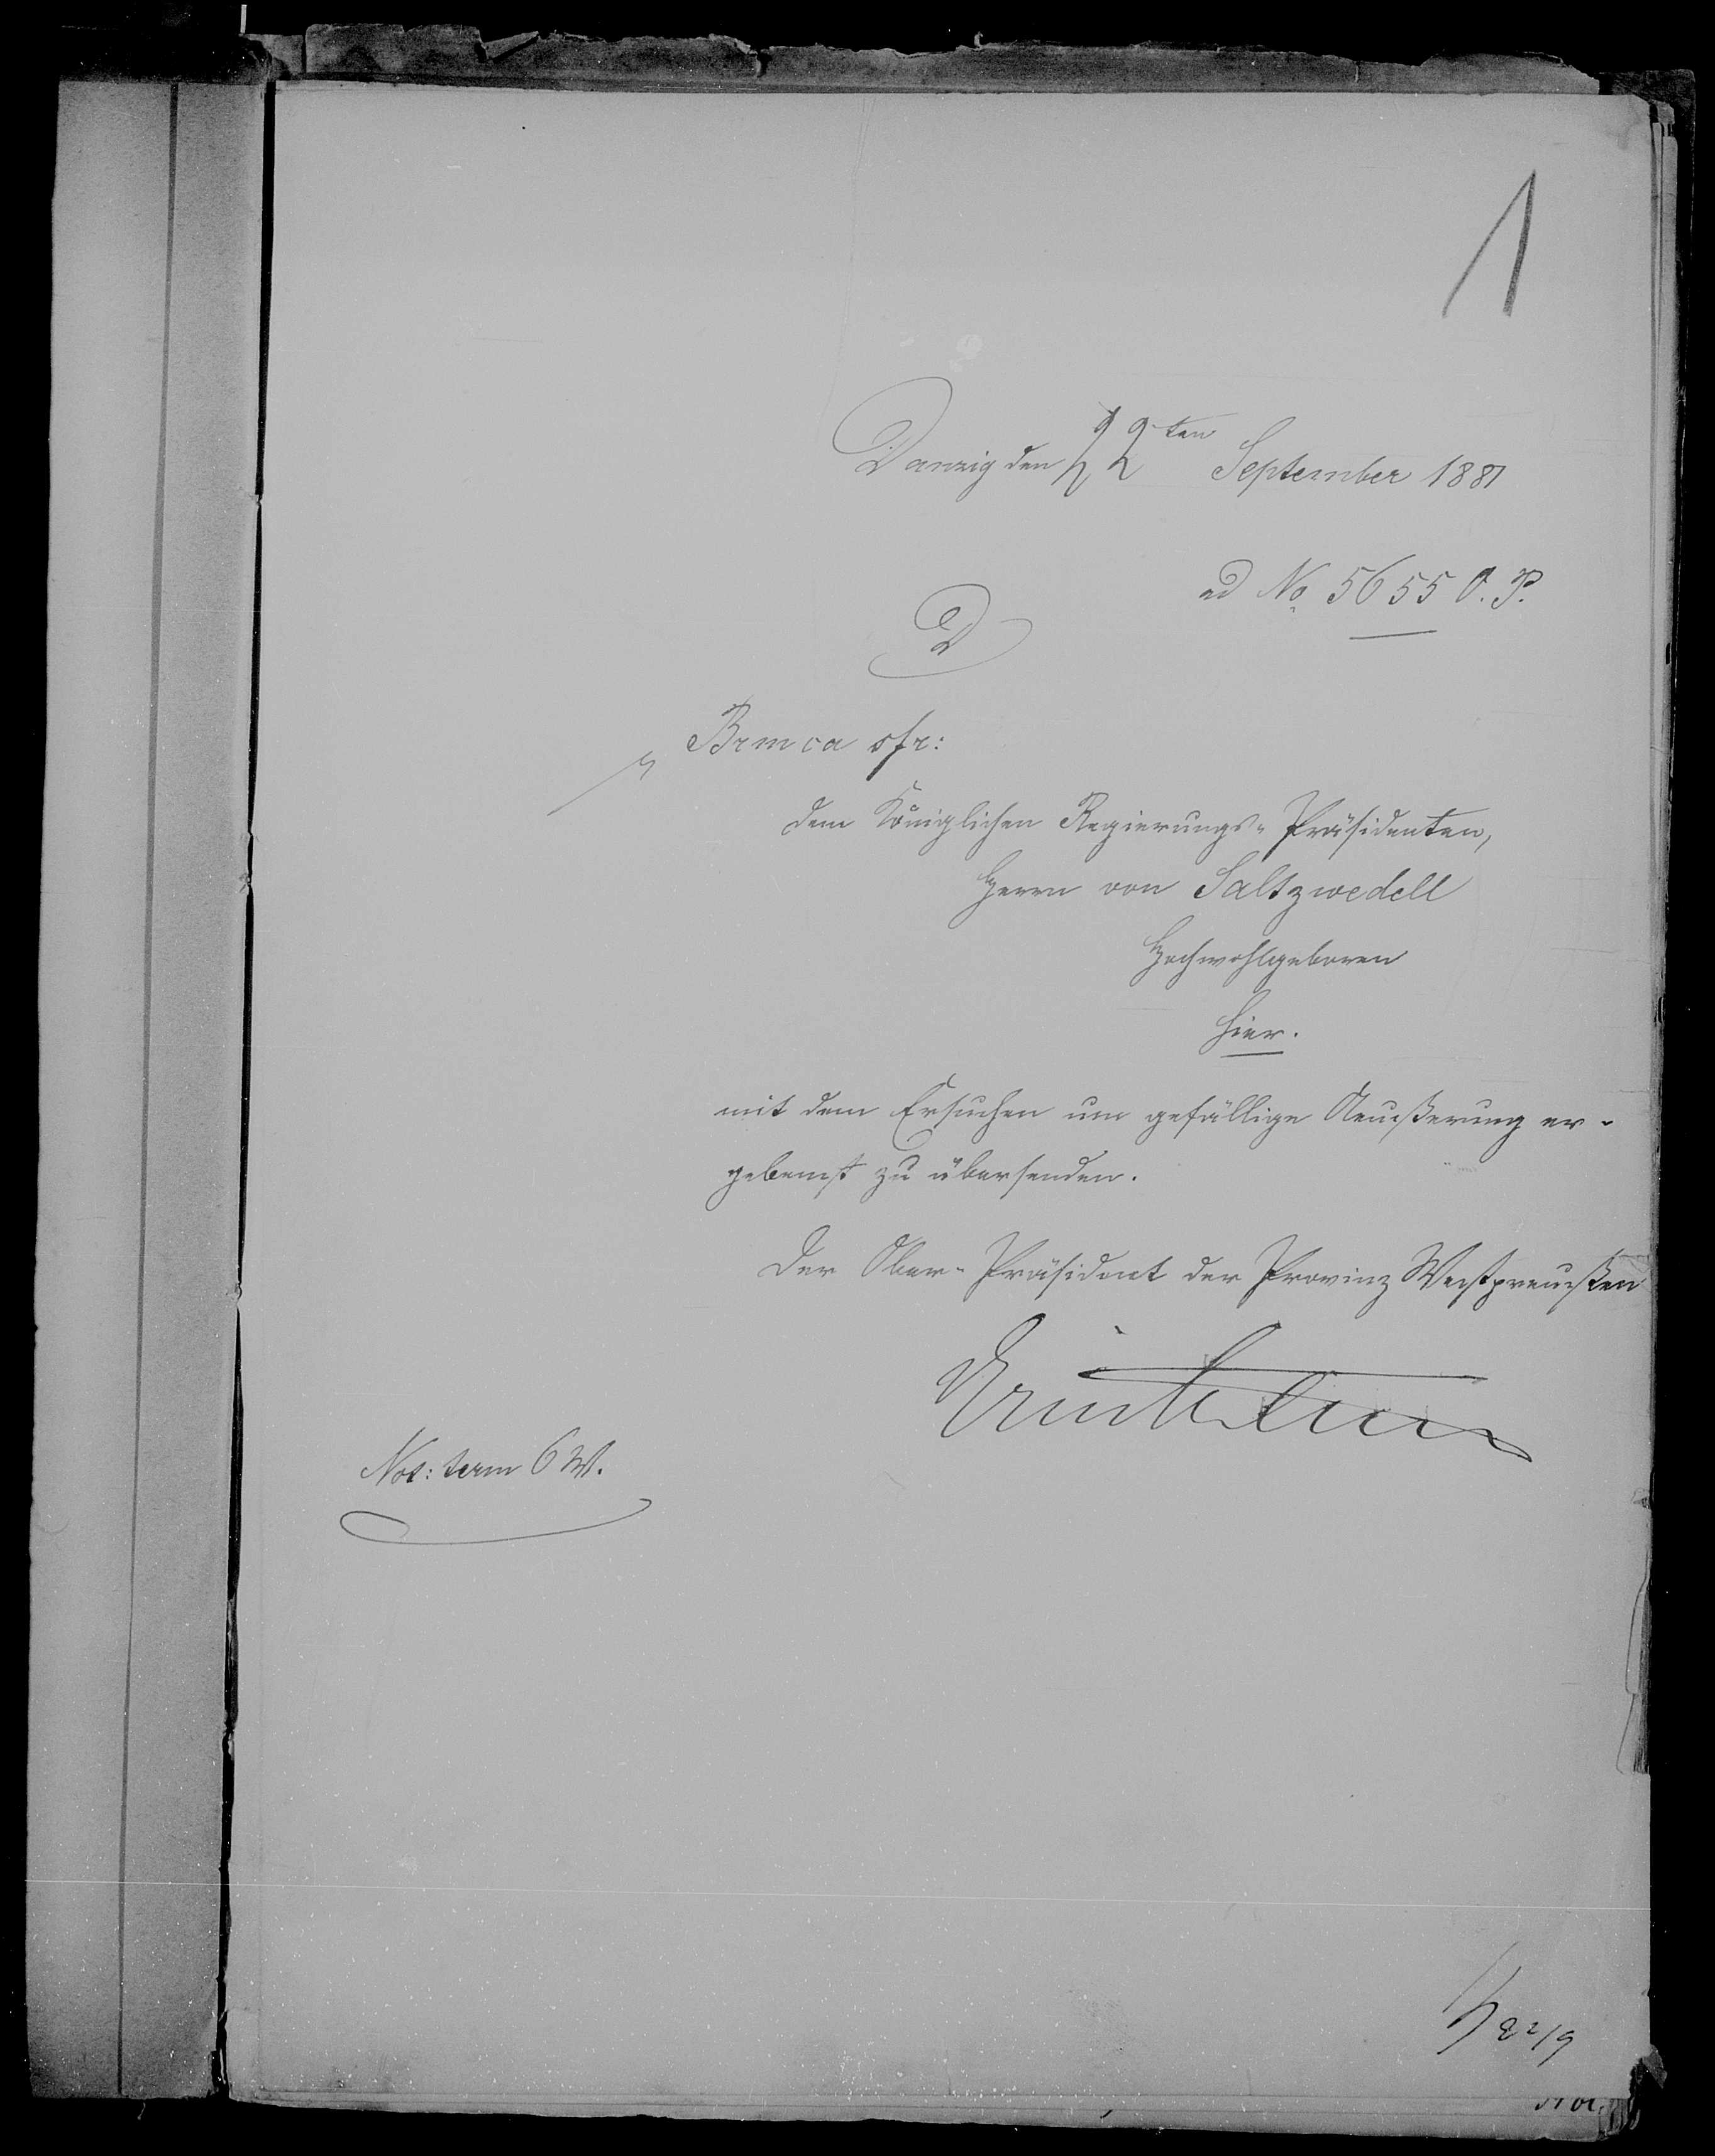 1
Danzig den 22ten September 1881
ad No. 5655 O. P.
D
Brm ca sfr:
dem Königlichen Regierungs-Präsidenten,
Herrn von Saltzwedell
Hochwohlgeboren
hier.
mit dem Ersuchen um gefällige Aeußerung er-
gebenst zu übersenden.
Der Ober-Präsident der Provinz Westpreußen
Not: term 6 W.
22/9